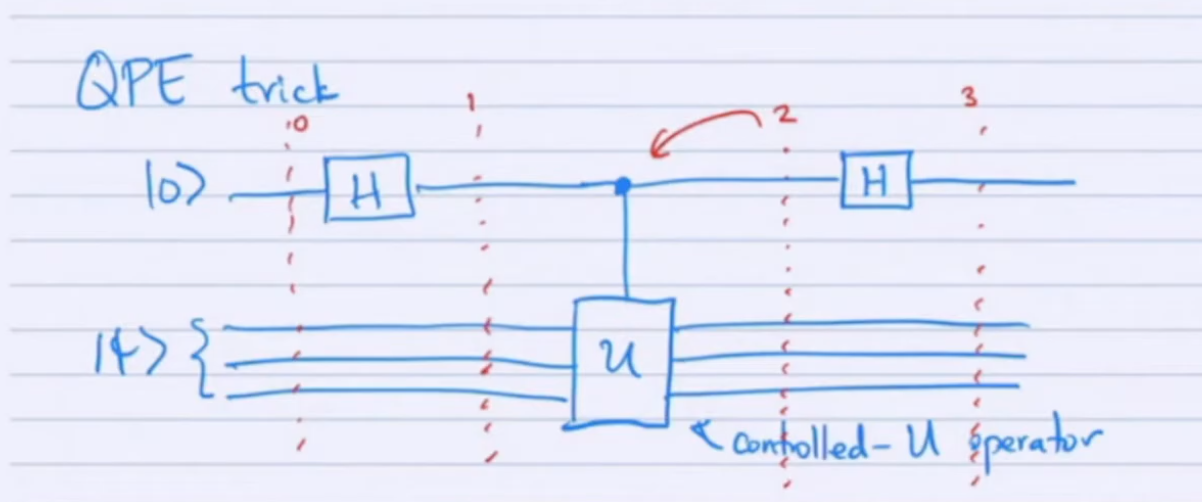 QPE trick
0 1 2 3
|0⟩ H H
|ψ⟩ { U
controlled-U operator